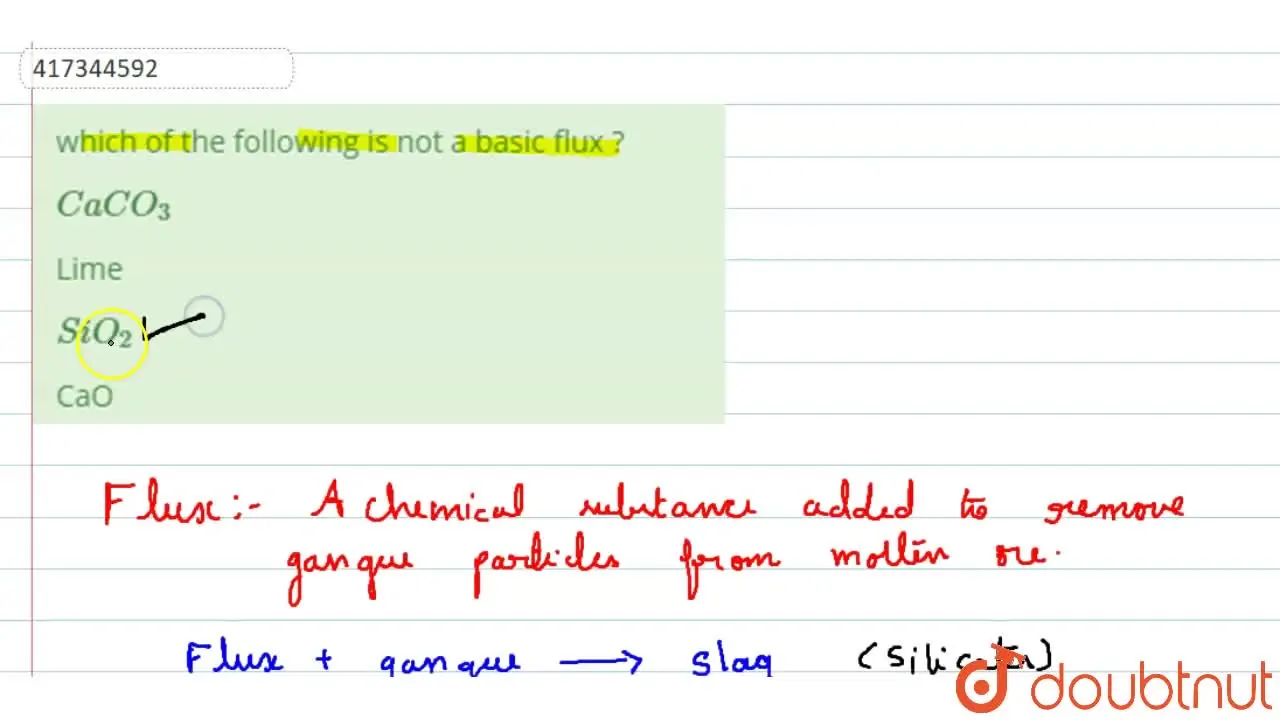 417344592
which of the following is not a basic flux ?
CaCO₃
Lime
SiO₂
CaO
Flux :- A chemical substance added to remove
gangue particles from molten ore.
Flux + gangue → slag (Silicate)
doubtnut